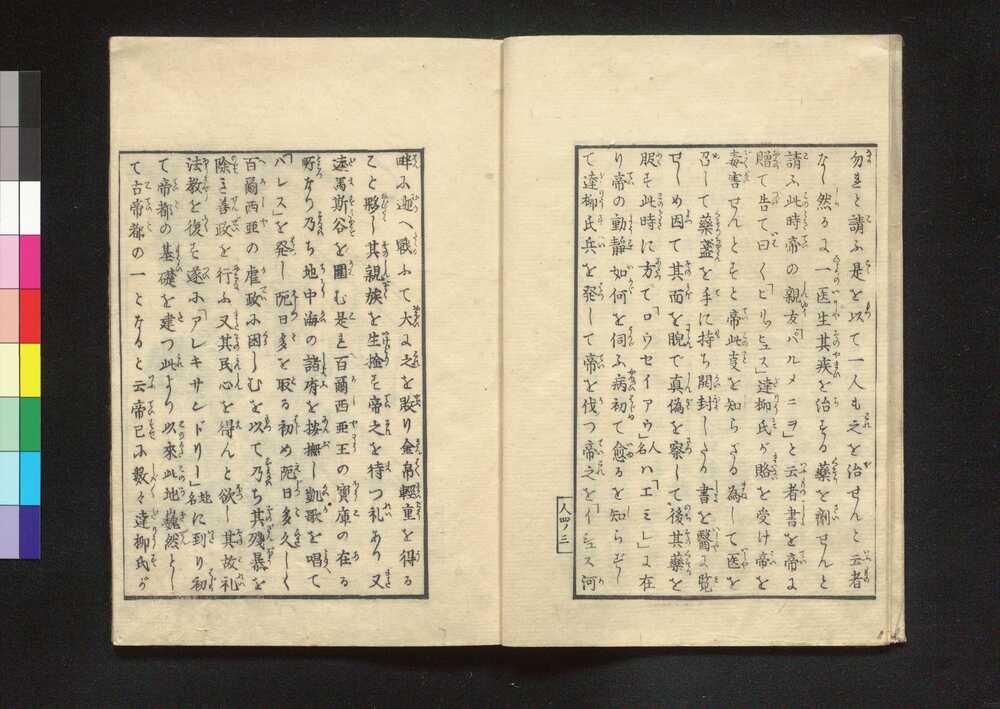 勿れと請ふ是を以て一人も之を治せんと云者
なし然るに一医生其疾を治する藥を劑せんと
請ふ此時帝の親友「パルメニヲ」と云者書を帝に
贈て告て曰く「ヒリッピュス」達柳氏が賂を受け帝を
毒害せんとすと帝此事を知らざる為して医を
召して藥盞を手に持ち開封したる書を醫に覧
せしめ因て其面を睨て真偽を察して後其藥を
服す此時に方て「ロウセイアウ」人名ハ「エミレ」に在
り帝の動静如何を伺ふ病初て愈るを知らずし
て達柳氏兵を発して帝を伐つ帝之を「イシュス河
人四ノ三
畔に逆へ戦ふて大に之を敗り金帛輕重を得る
こと夥し其親族を生擒す帝之を待つ礼あり又
達馬斯谷を圍む是れ百爾西亜王の寳庫の在る
所なり乃ち地中海の諸府を按撫し凱歌を唱て
「パレス」を発し阨日多を取る初め阨日多久しく
百爾西亜の虐政に困しむを以て乃ち其残暴を
除き善政を行ふ又其民心を得んと欲し其故礼
法教を復す遂に「アレキサレドリー」地名に到り初
て帝都の基礎を建つ此より以來此地巍然とし
て古帝都の一となると云帝已に數々達柳氏が